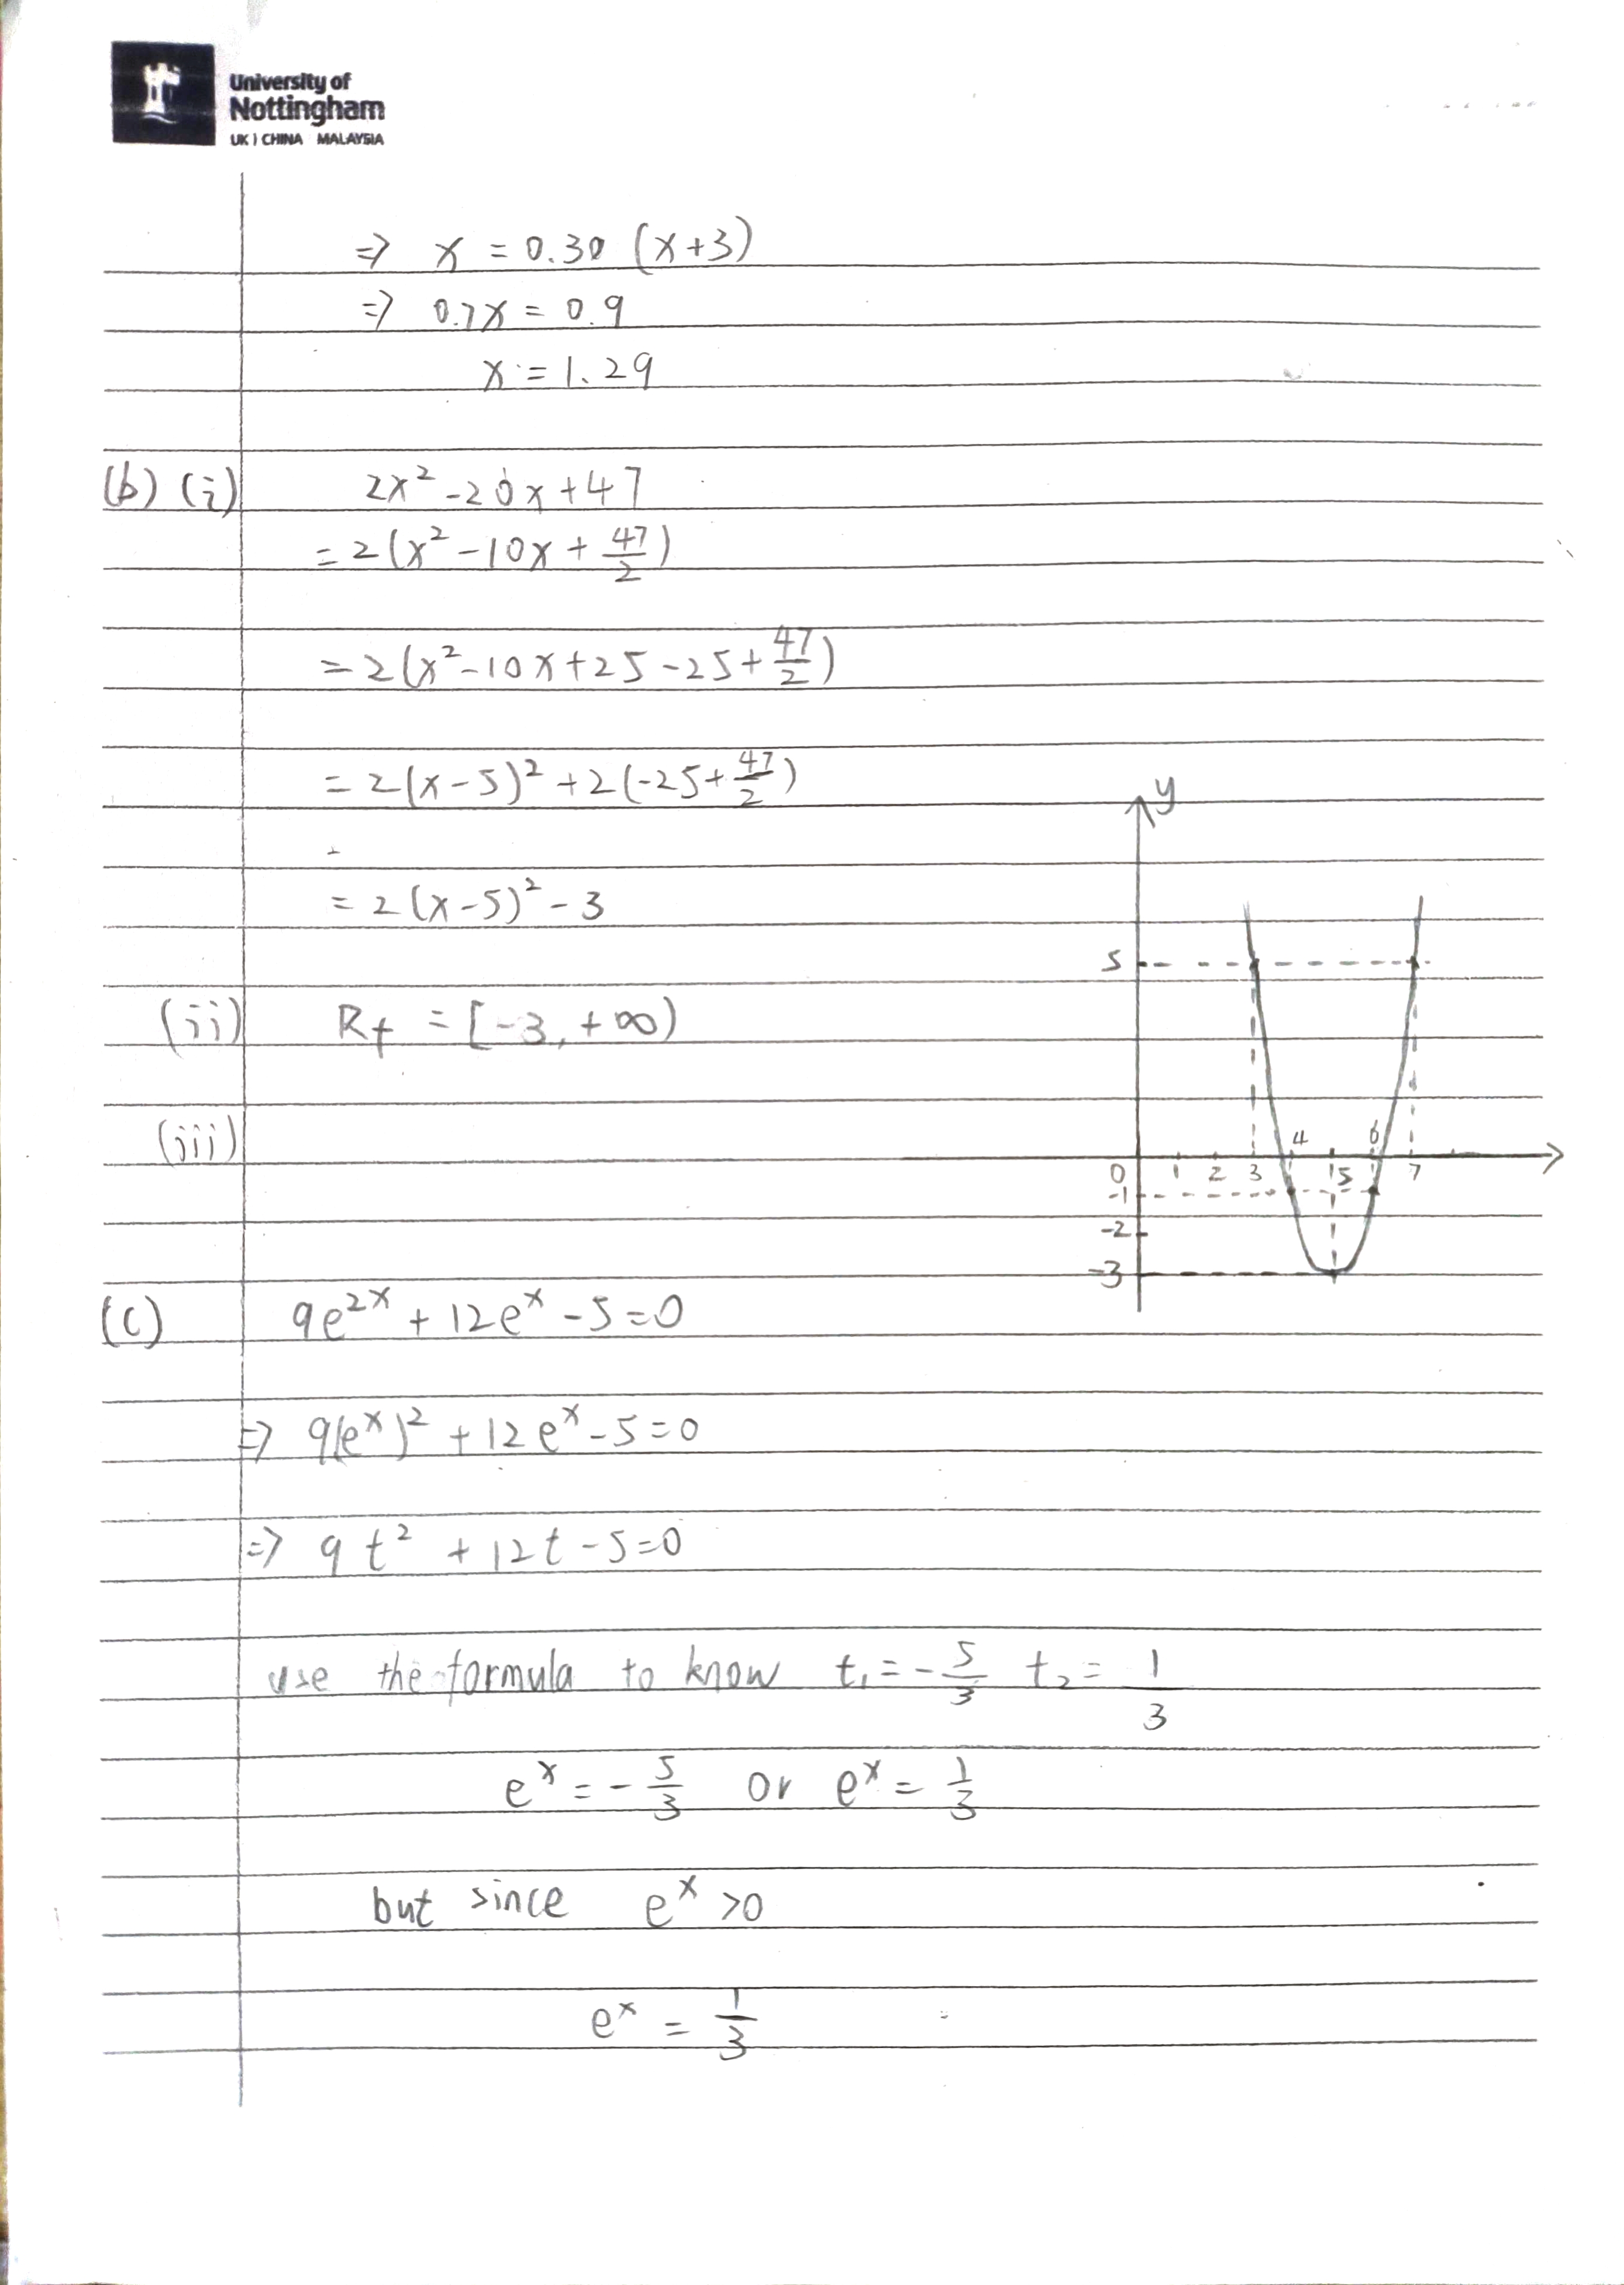 University of
Nottingham
UK | CHINA MALAYSIA
⇒ x = 0.30 (x+3)
⇒ 0.7x = 0.9
x = 1.29
(b) (i) 2x² -20x+47
= 2(x² -10x + 47/2)
= 2(x²-10x+25-25+47/2)
= 2(x-5)² +2(-25+47/2)
= 2(x-5)² - 3
(ii) Rf = [-3, +∞)
(iii)
y
5
4 6
0 1 2 3 5 7
-1
-2
-3
(c) 9e^2x + 12e^x -5=0
⇒ 9(e^x)² +12e^x-5=0
⇒ 9t² +12t-5=0
use the formula to know t₁=-5/3 t₂=1/3
e^x=-5/3 or e^x=1/3
but since e^x >0
e^x = 1/3